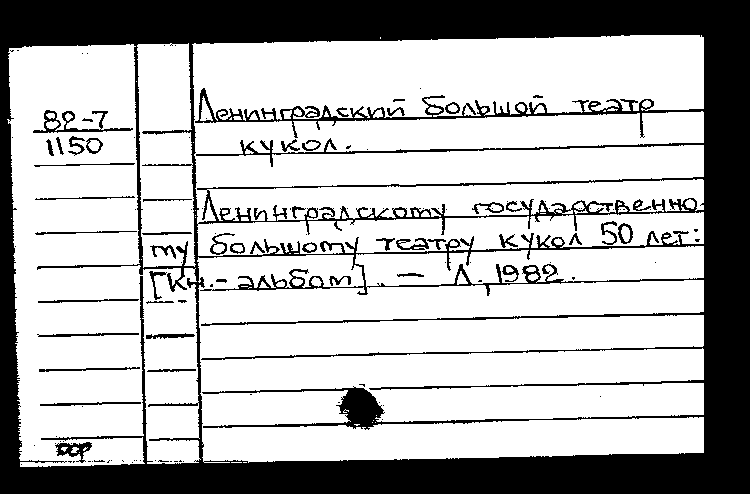 82-7
1150
Ленинградский большой театр
кукол.
Ленинградскому государственно-
му большому театру кукол 50 лет:
[Кн.-альбом]. — Л., 1982.